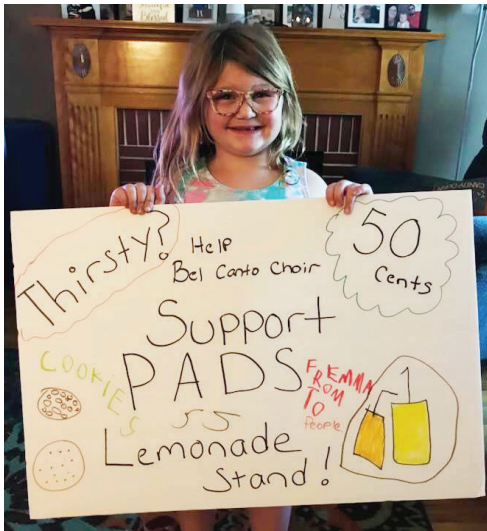 Thirsty?
Help
Bel Canto Choir
50
Cents
Support
PADS
COOKIES
FROM
TO
People
Lemonade
Stand!
Blessed